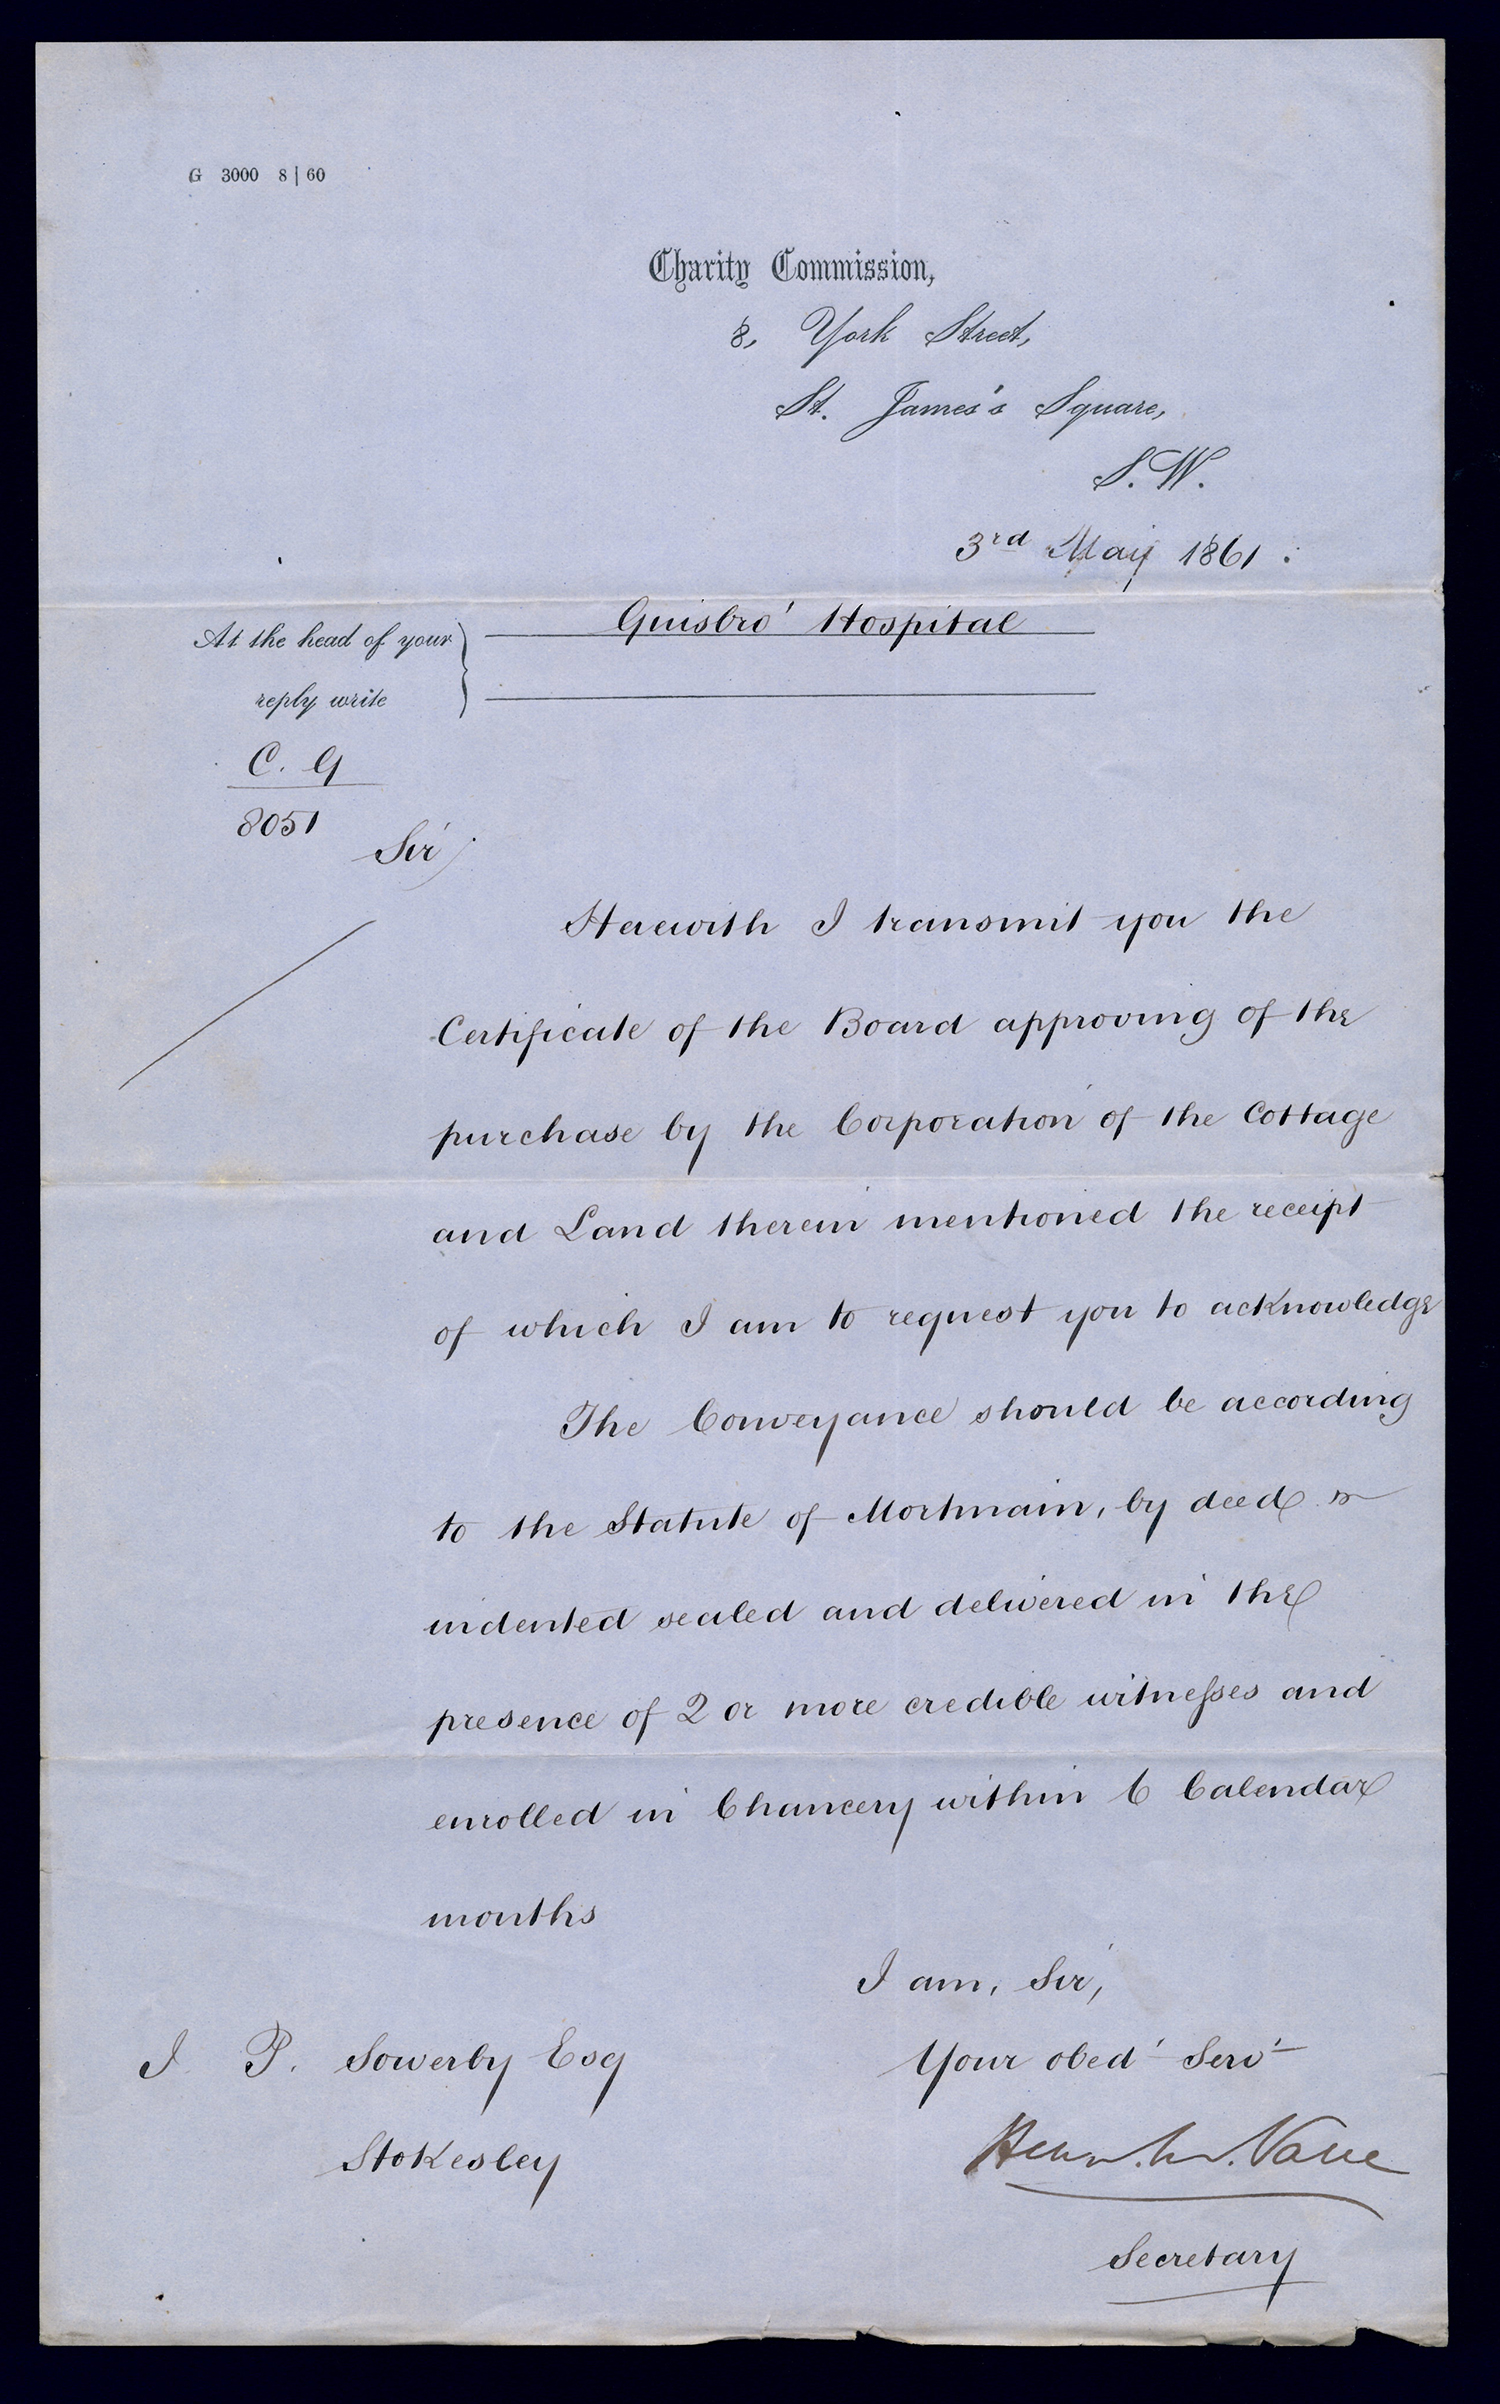 G 3000 8 | 60
Charity Commission,
8, York Street,
St. James's Square,
S.W.
3rd May 1861.
At the head of your
reply write
Guisbro' Hospital
C. G
8051
Sir,
Herewith I transmit you the
Certificate of the Board approving of the
purchase by the Corporation of the Cottage
and Land therein mentioned the receipt
of which I am to request you to acknowledge
The Conveyance should be according
to the Statute of Mortmain, by deed
indented sealed and delivered in the
presence of 2 or more credible witnesses and
enrolled in Chancery within 6 Calendar
months
I am, Sir,
Your obedt Servt
Vane
Secretary
J. P. Sowerby Esq
Stokesley